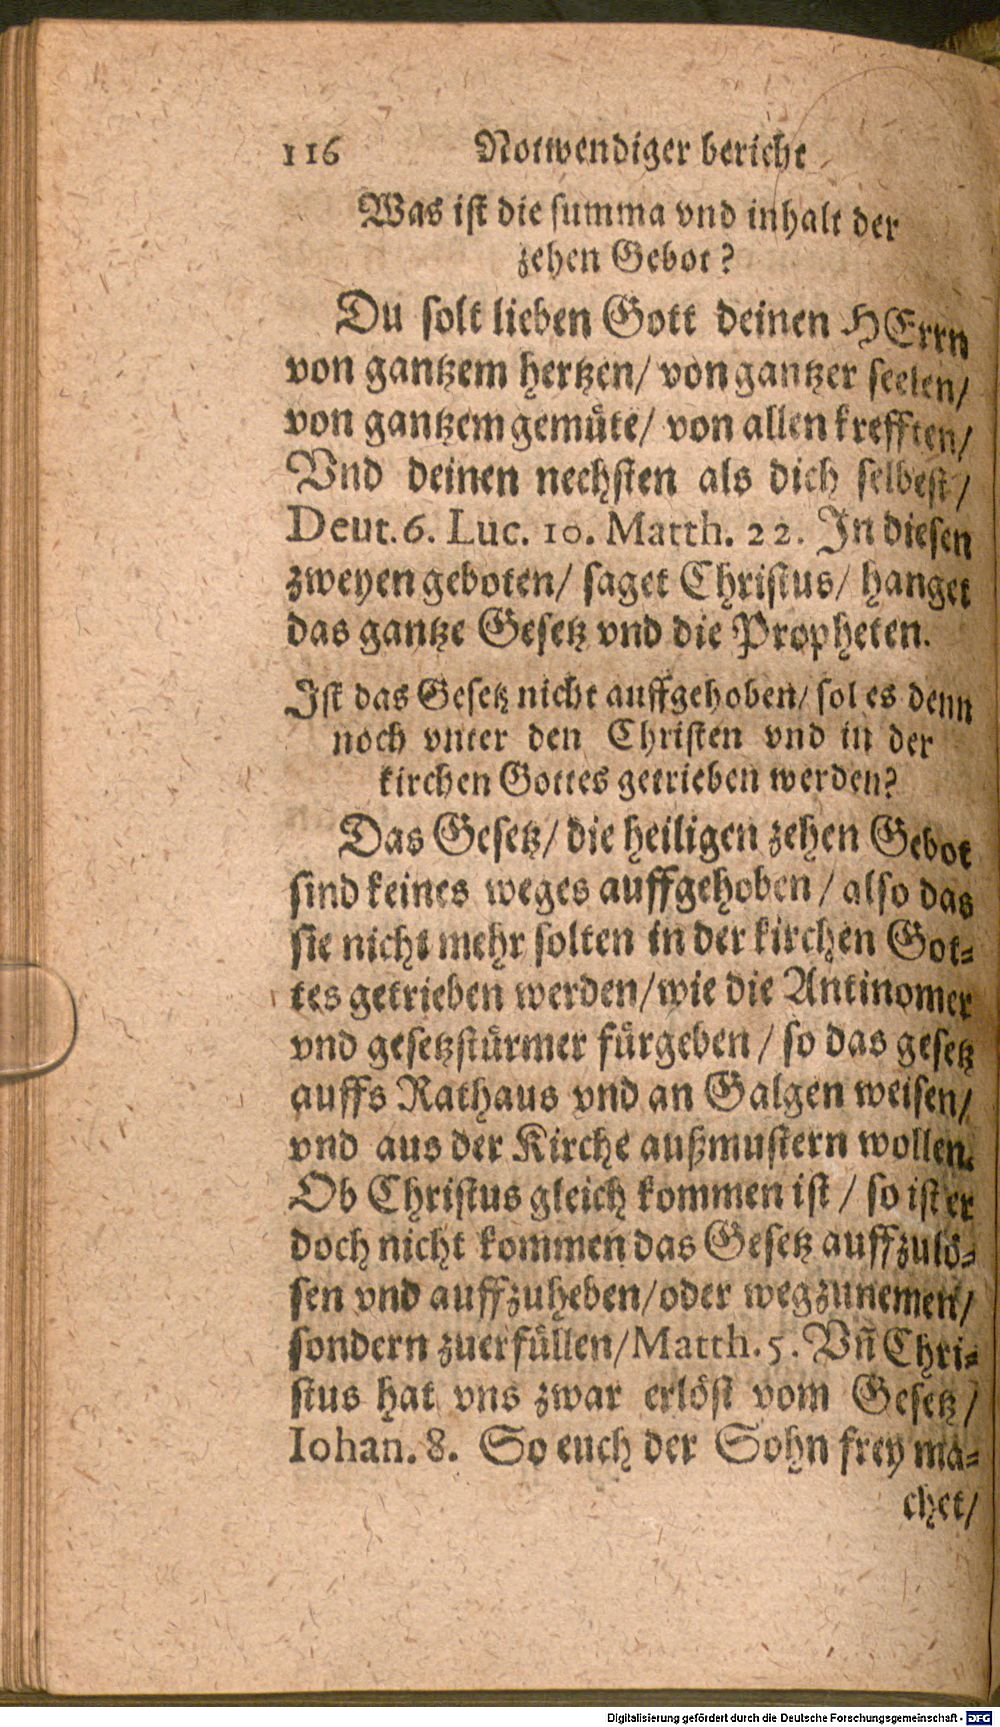 116 Notwendiger bericht
Was ist die summa vnd inhalt der
zehen Gebot?
Du solt lieben Gott deinen HErrn
von gantzem hertzen/ von gantzer seelen/
von gantzem gemüte/ von allen krefften/
Vnd deinen nechsten als dich selbest/
Deut. 6. Luc. 10. Matth. 22. In diesen
zweyen geboten/ saget Christus/ hanget
das gantze Gesetz vnd die Propheten.
Ist das Gesetz nicht auffgehoben/ sol es denn
noch vnter den Christen vnd in der
kirchen Gottes getrieben werden?
Das Gesetz/ die heiligen zehen Gebot
sind keines weges auffgehoben/ also das
sie nicht mehr solten in der kirchen Got-
tes getrieben werden/ wie die Antinomer
vnd gesetzstürmer fürgeben/ so das gesetz
auffs Rathaus vnd an Galgen weisen/
vnd aus der Kirche außmustern wollen.
Ob Christus gleich kommen ist/ so ist er
doch nicht kommen das Gesetz auffzulö-
sen vnd auffzuheben/ oder wegzunemen/
sondern zuerfüllen/ Matth. 5. Vñ Chri-
stus hat vns zwar erlöst vom Gesetz/
Iohan. 8. So euch der Sohn frey ma-
chet/
Digitalisierung gefördert durch die Deutsche Forschungsgemeinschaft - DFG